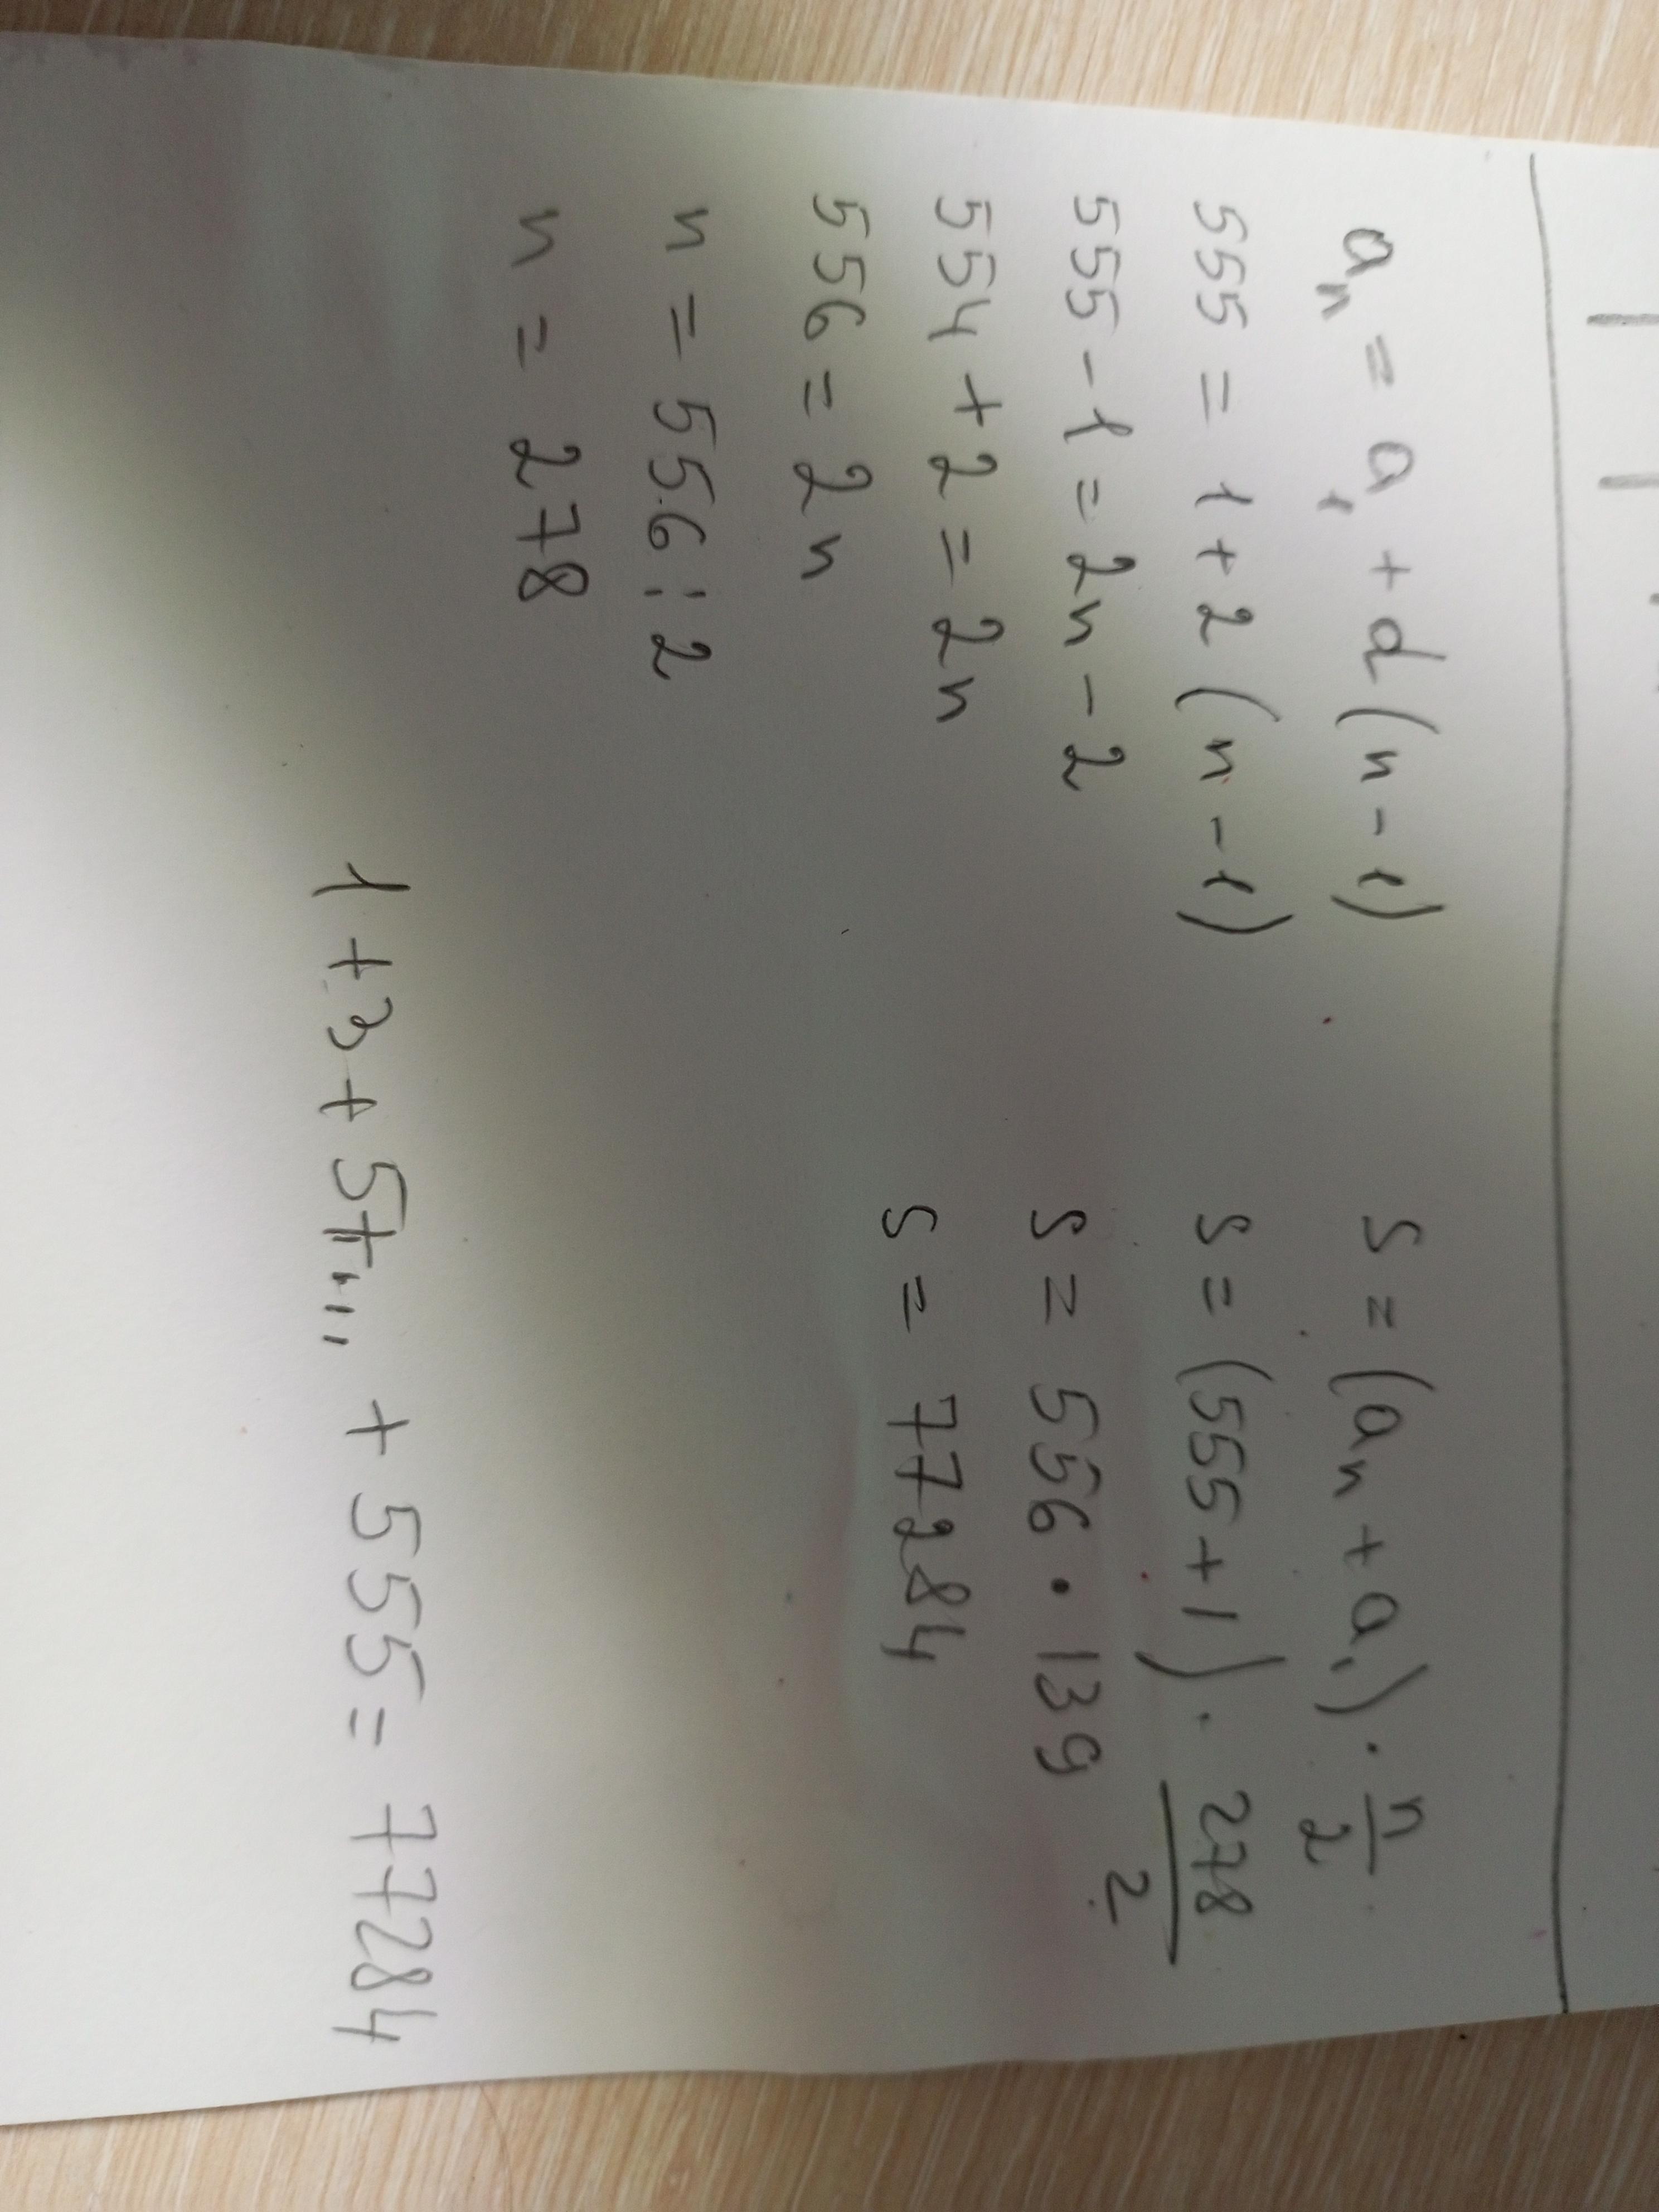 aₙ = a₁ + d(n-1)
555 = 1+2(n-1)
555-1=2n-2
554+2=2n
556=2n
n=556:2
n=278
S=(aₙ+a₁)·n/2
S=(555+1)·278/2
S=556·139
S=77284
1+3+5+... +555=77284